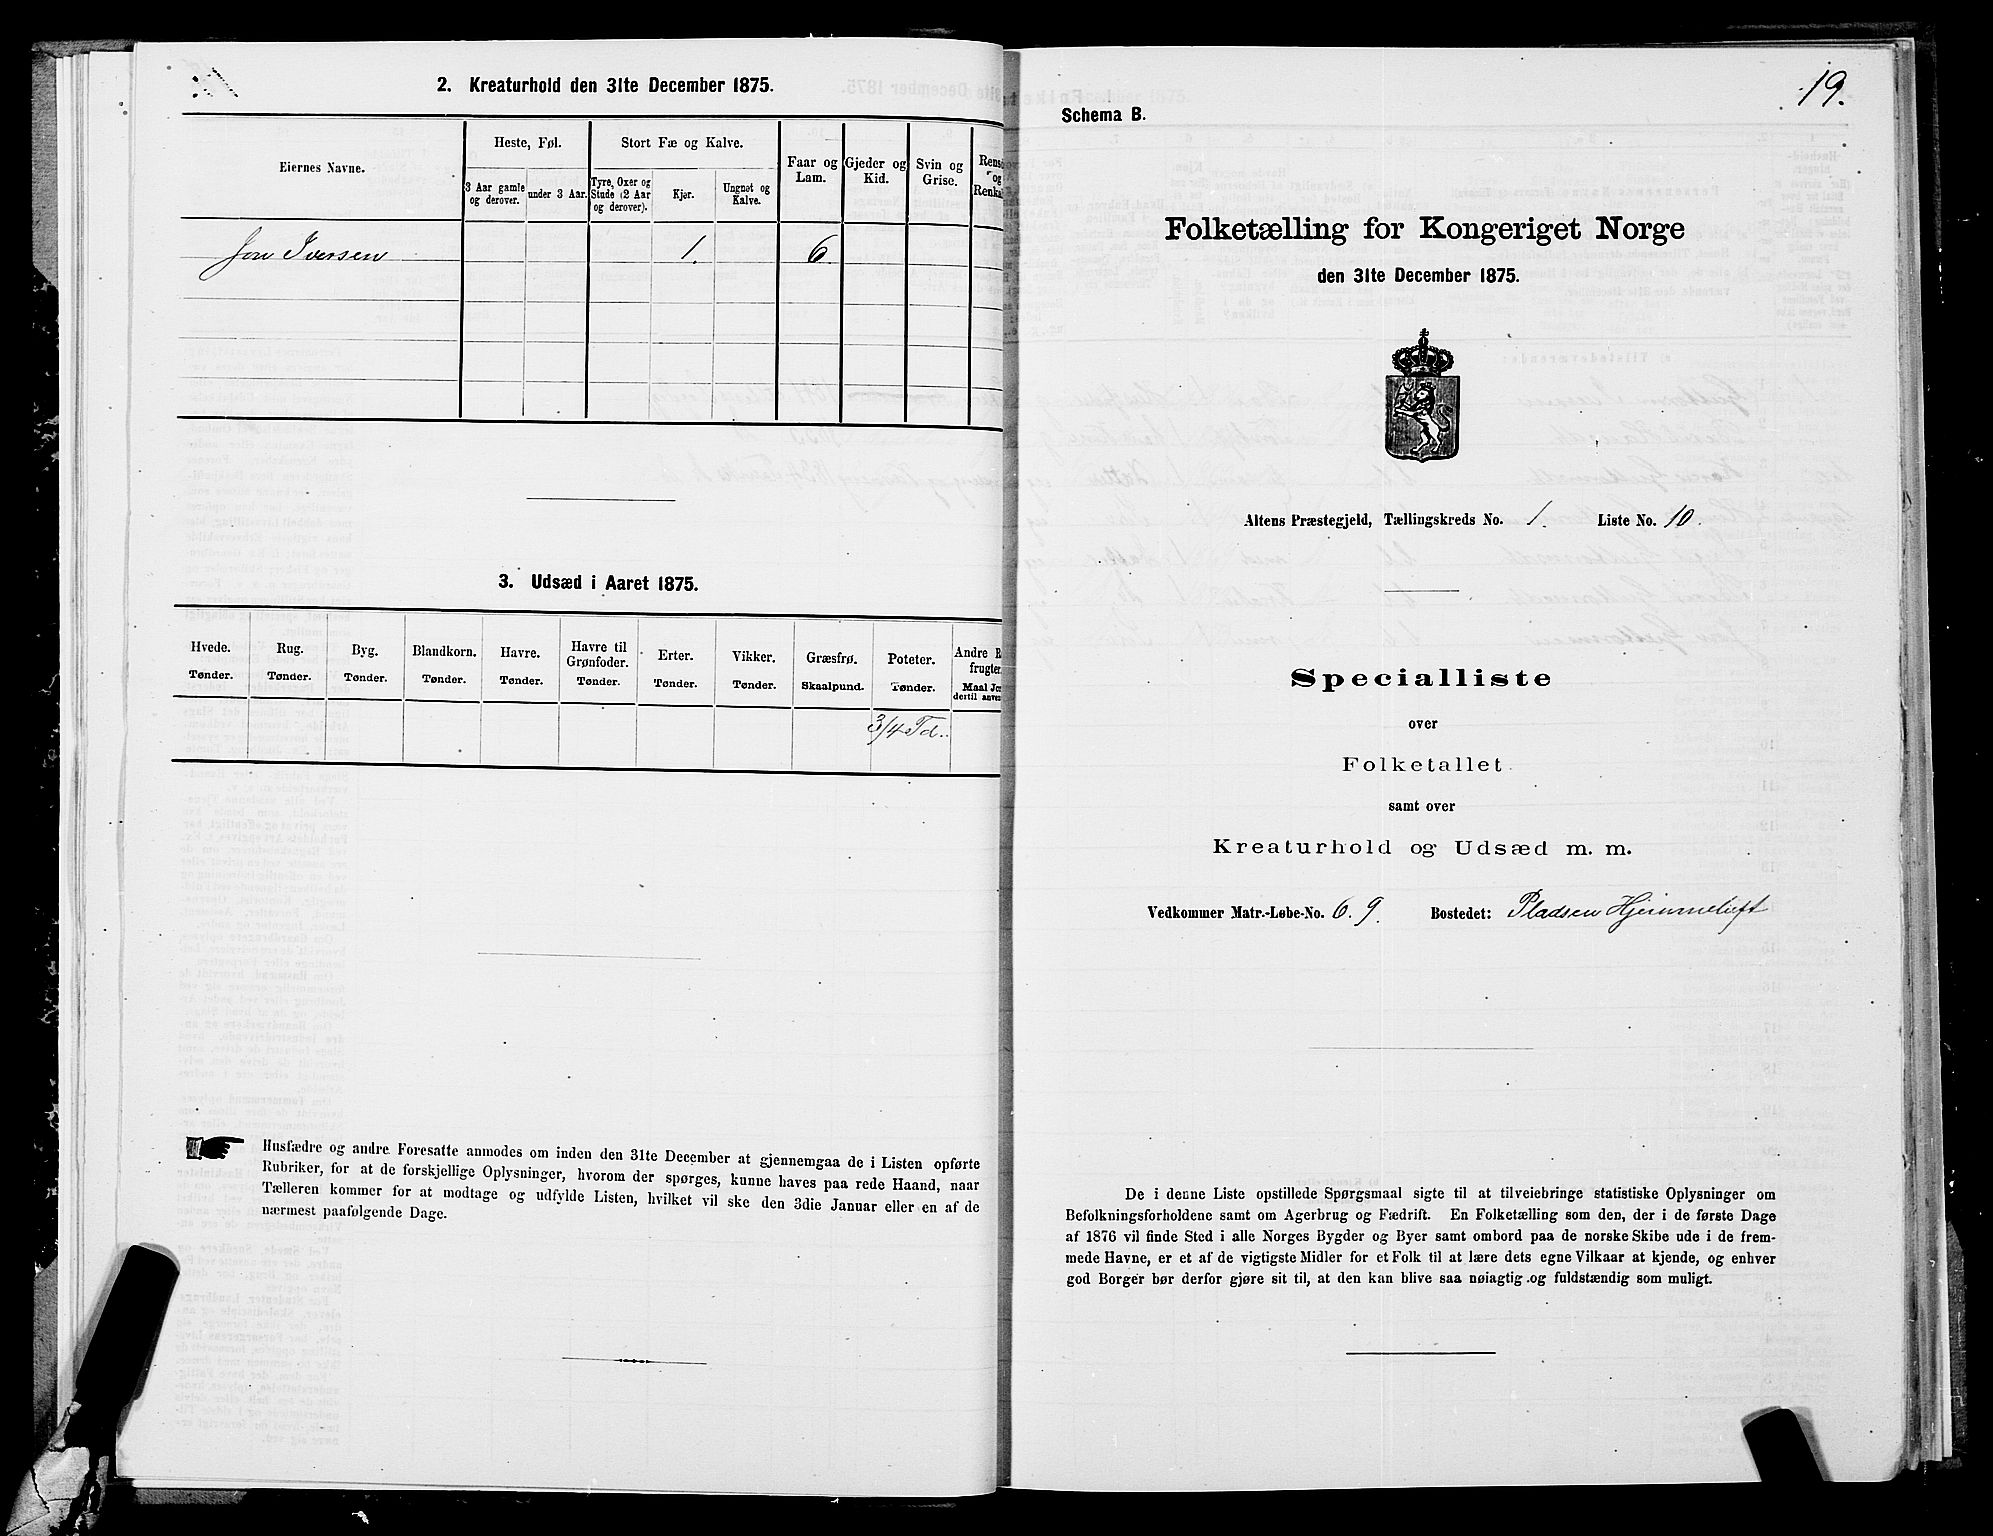 2. Kreaturhold den 31te December 1875.
Eiernes Navne.
Heste, Føl.
Stort Fæ og Kalve.
Faar og Lam.
Gjeder og Kid.
Svin og Grise.
Rens
og
Renka
3 Aar gamle og derover.
under 3 Aar.
Tyre, Oxer og Stude (2 Aar og derover).
Kjør.
Ungnøt og Kalve.
Jon Iversen 1. 6
3. Udsæd i Aaret 1875.
Hvede. Tønder.
Rug. Tønder.
Byg. Tønder.
Blandkorn. Tønder.
Havre. Tønder.
Havre til Grønfoder. Tønder.
Erter. Tønder.
Vikker. Tønder.
Græsfrø. Skaalpund.
Poteter. Tønder.
Andre R
frugter
Maal Jor
dertil anven
3/4 Td..
Husfædre og andre Foresatte anmodes om inden den 31te December at gjennemgaa de i Listen opførte
Rubriker, for at de forskjellige Oplysninger, hvorom der spørges, kunne haves paa rede Haand, naar
Tælleren kommer for at modtage og udfylde Listen, hvilket vil ske den 3die Januar eller en af de
nærmest paafølgende Dage.
19.
Schema B.
Folketælling for Kongeriget Norge
den 31te December 1875.
Altens Præstegjeld, Tællingskreds No. 1. Liste No. 10.
Specialliste
over
Folketallet
samt over
Kreaturhold og Udsæd m. m.
Vedkommer Matr.-Løbe-No. 6. 9. Bostedet: Pladsen Hjemmeluft
De i denne Liste opstillede Spørgsmaal sigte til at tilveiebringe statistiske Oplysninger om
Befolkningsforholdene samt om Agerbrug og Fædrift. En Folketælling som den, der i de første Dage
af 1876 vil finde Sted i alle Norges Bygder og Byer samt ombord paa de norske Skibe ude i de frem-
mede Havne, er et af de vigtigste Midler for et Folk til at lære dets egne Vilkaar at kjende, og enhver
god Borger bør derfor gjøre sit til, at den kan blive saa nøiagtig og fuldstændig som muligt.